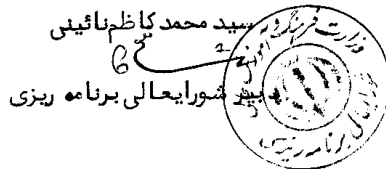 سید محمد کاظم نائینی
دبیر شورایعالی برنامه ریزی
وزارت فرهنگ و آموزش
شورایعالی برنامه ریزی